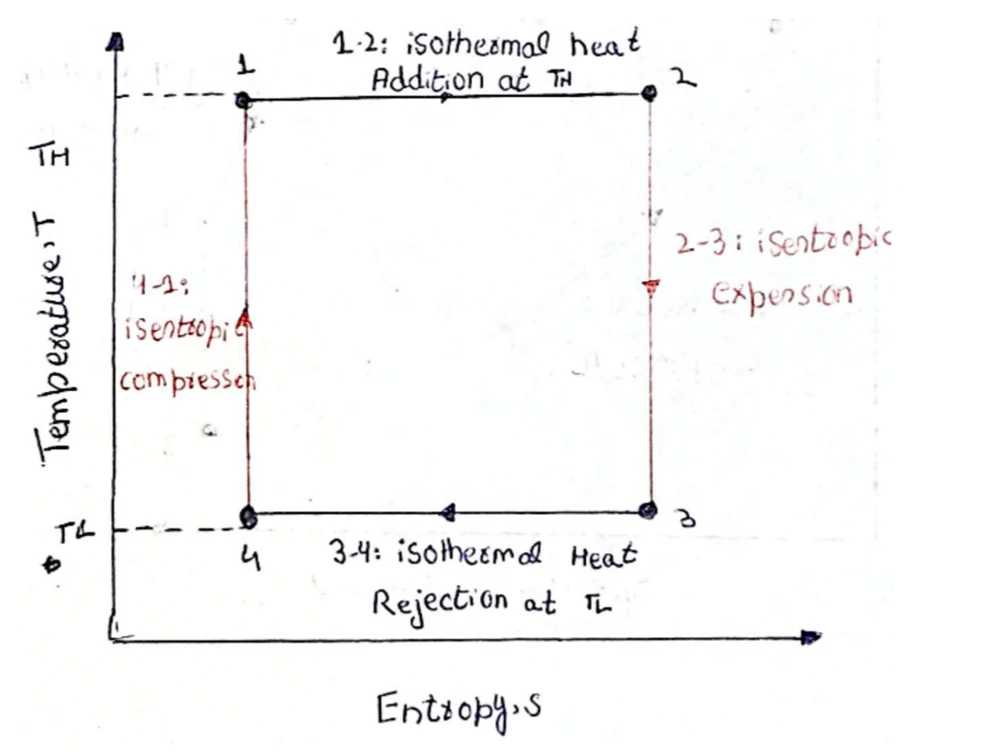 1-2: isothermal heat
Addition at TH
1
2
TH
Temperature, T
2-3: isentropic
expension
4-1:
isentropic
compressen
TL
4
3
3-4: isothermal Heat
Rejection at TL
Entropy, s